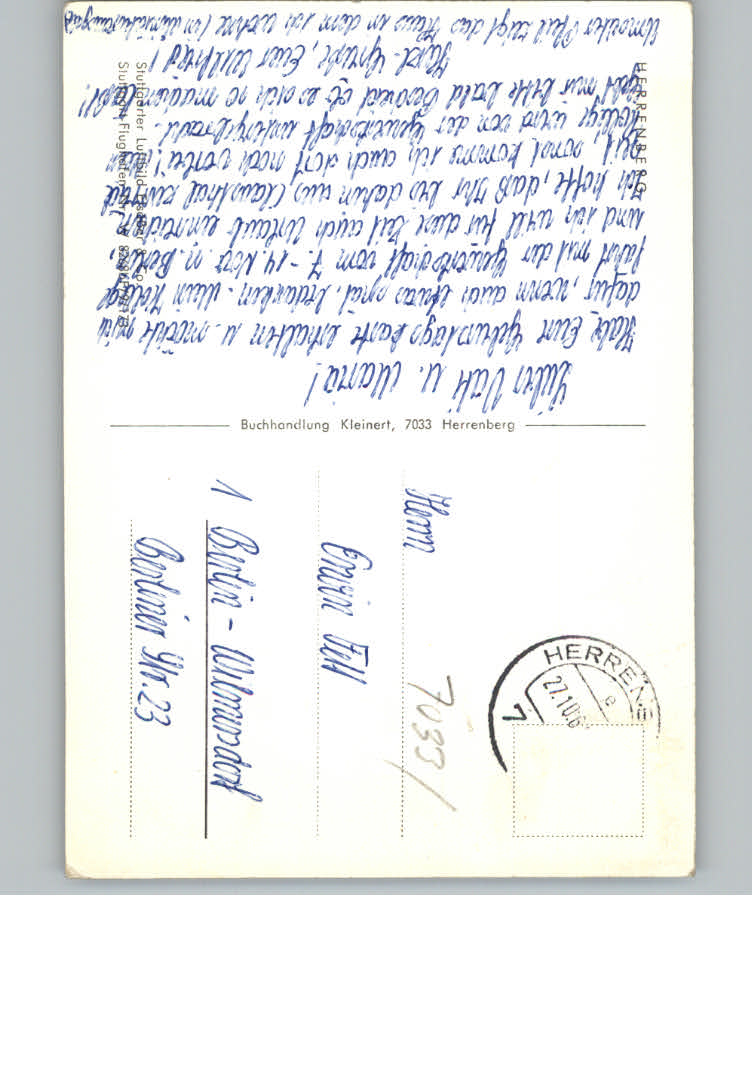 HERRENBERG
Stuttgarter Luftbild Elsäßer & Co.
Stuttgart-Flughafen
Buchhandlung Kleinert, 7033 Herrenberg
Liebe Vati u. Mama!
Habe Eure Geburtstagskarte erhalten u. möchte mich
dafür, wenn auch etwas spät, bedanken. Mein Kollege
fährt mit der Gewerkschaft vom 7.-14. Nov. n. Berlin,
und ich will für diese Zeit auch Urlaub einreichen.
Ich hoffe, daß Ihr bis dahin aus Clausthal zurück
seid, sonst komme ich auch dort noch vorbei! Mein
Kollege wird von der Gewerkschaft untergebracht.
Gebt mir bitte bald Bescheid ob es sich so machen läßt!
Herzl. Grüße, Euer Wilfried!
Unser Pfeil zeigt das Haus in dem ich wohne
Herrn
Erwin
1 Berlin - Wilmersdorf
Berliner Str. 23
7033/
HERRENB
27.10.6
e
7